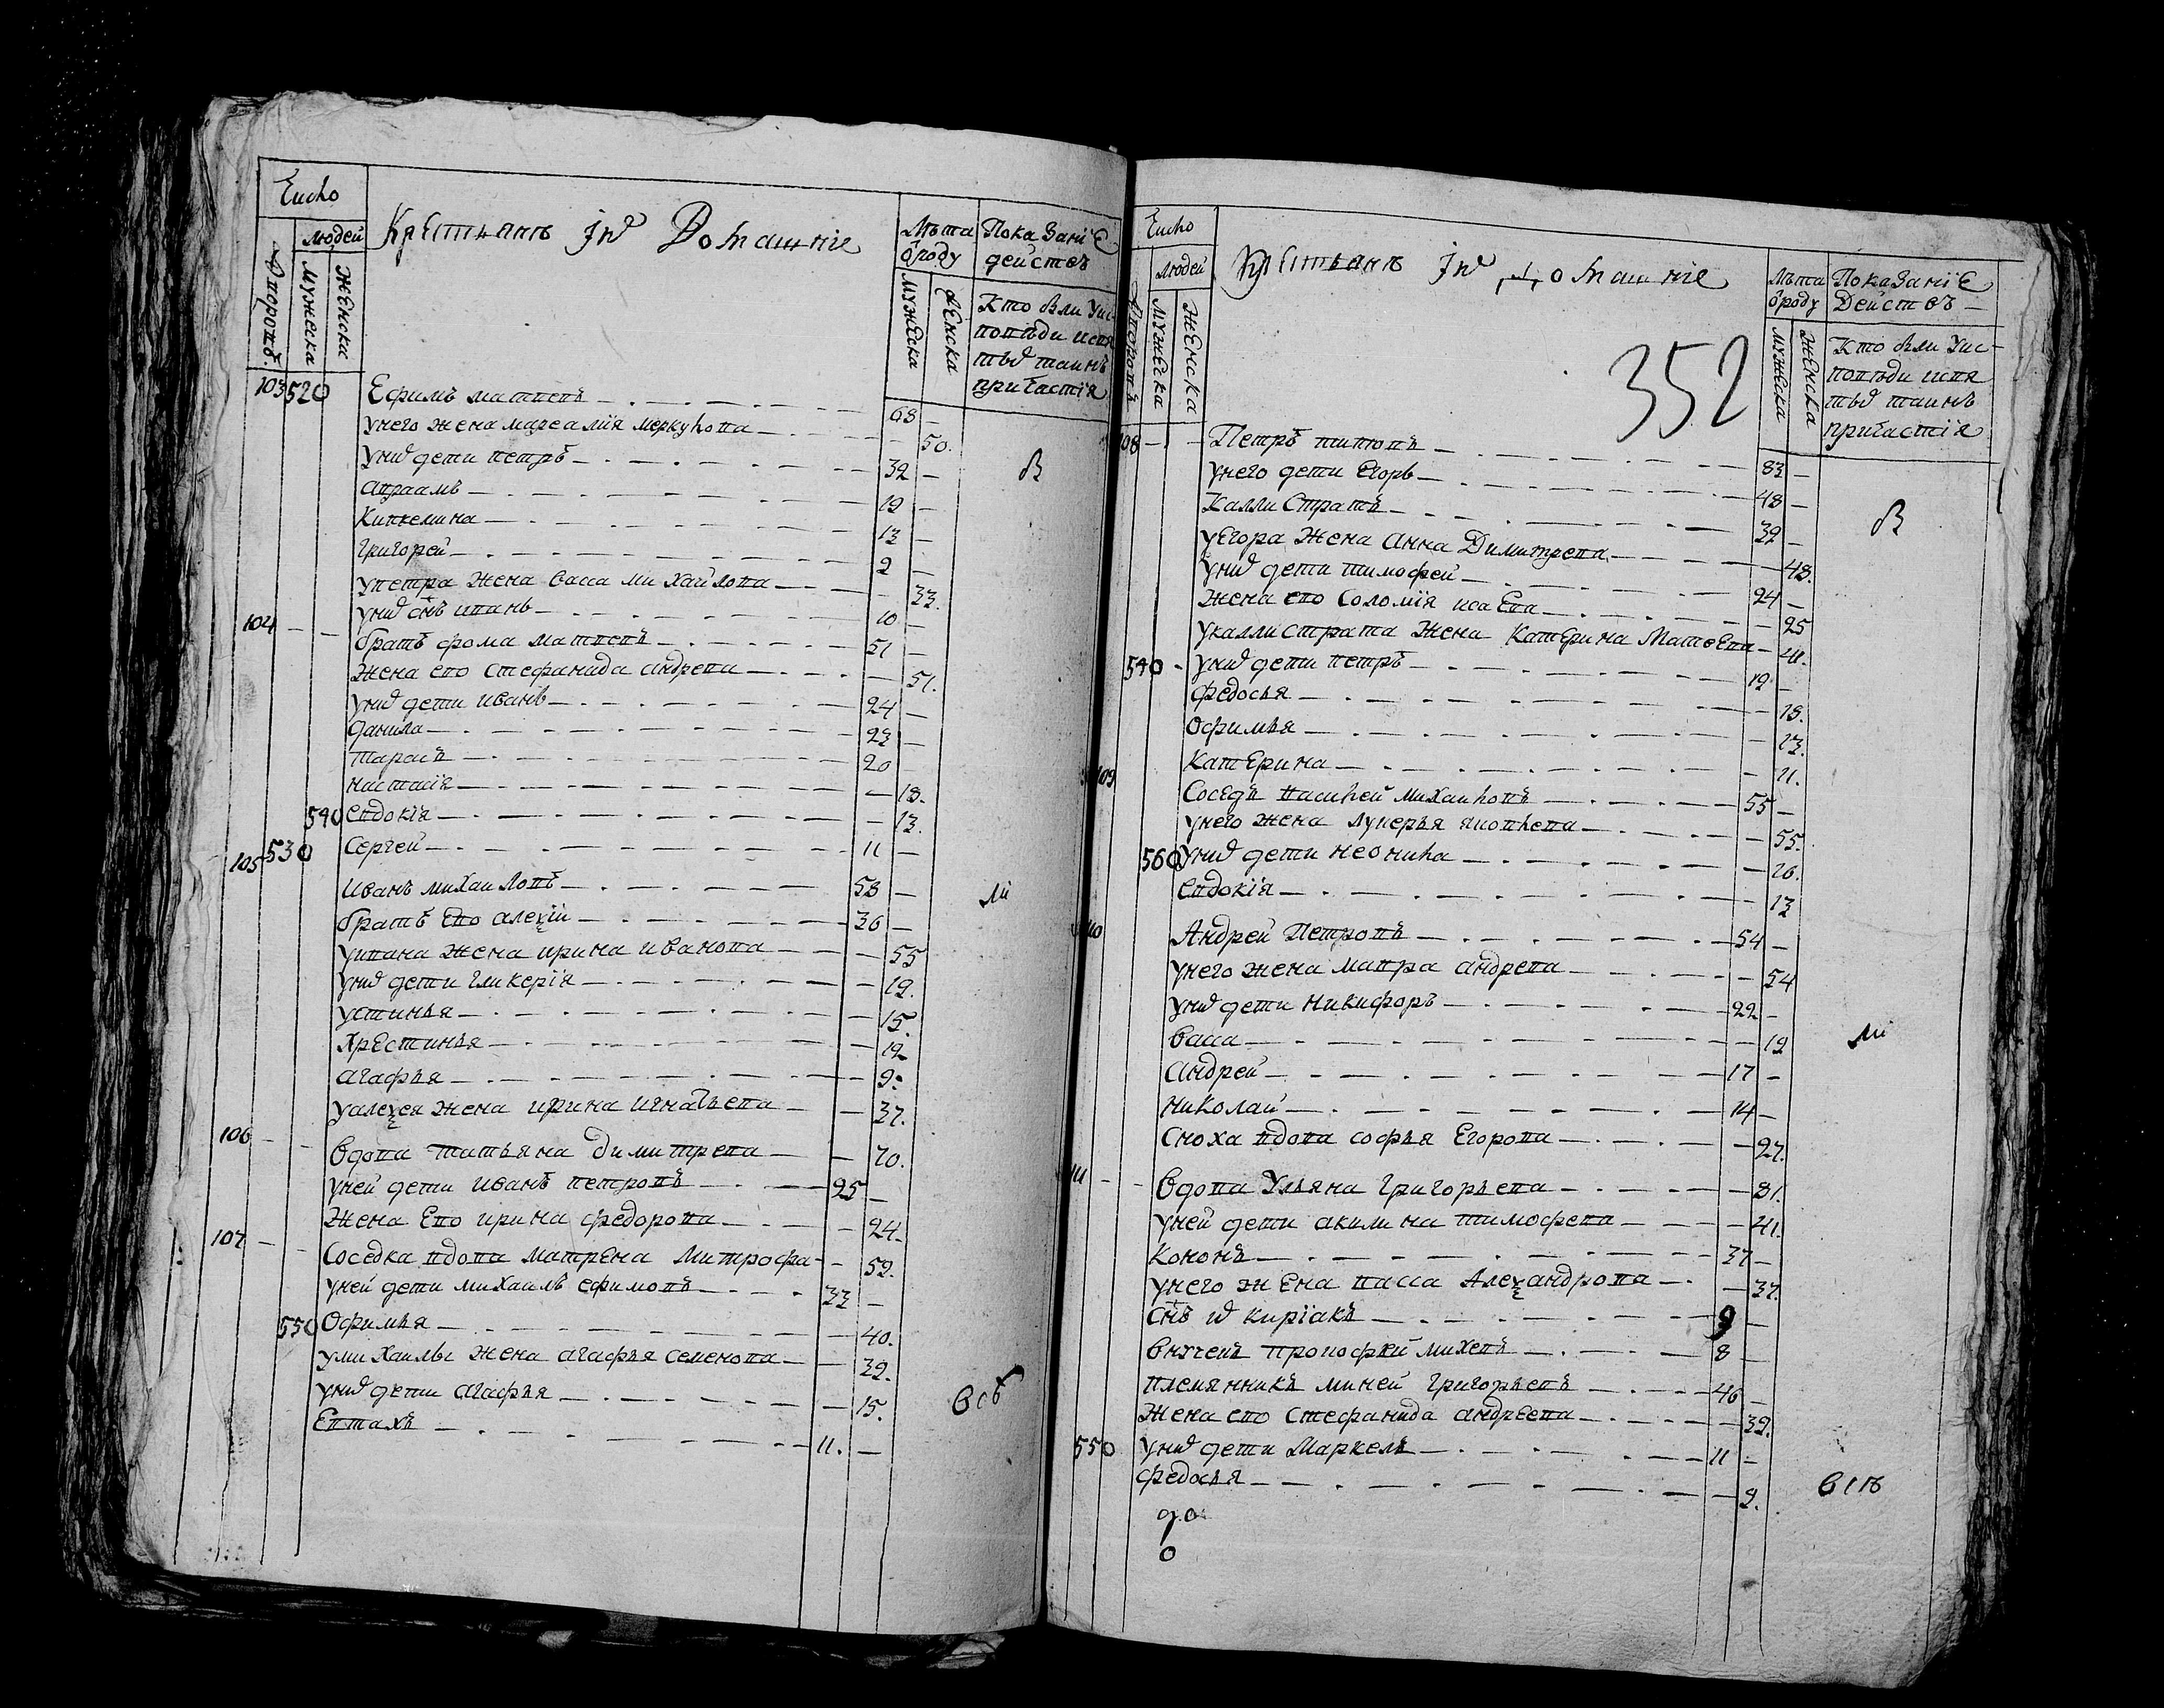 Число
Людей
Дворовъ
Мужеска
Женски
Крестьянъ іхъ Домашніе
Лѣта ѿроду
Мужеска
Женска
Показаніе действъ
Кто был уис-
поведи исвя
тыхъ таинъ
причастія
103 520 Ефимъ матвеевъ 68
унего жена мареамія меркулова 50.
унихъ дети петръ 32 В
авраамъ 19
Кинкелина 13
григорей 2
упетра жена васа михайлова 33.
унихъ снъ иванъ 10
104 братъ фома матвеевъ 51
жена ево стефанида андрева 51.
унихъ дети иванъ 24
данила 23
тарасъ 20
настасія 18.
540 евдокія 13.
530 Сергей 11
105 иванъ михаиловъ 58 ми
братъ ево алеѯіи 36
уивана жена ирина иванова 55
унихъ дети гликерія 19.
устинья 15.
Хрестинья 12
агафья 9.
уалеѯея жена ирина игнатьева 37.
106 вдова татьяна димитрева 70.
уней дети иванъ петровъ 25
жена Ево ирина федорова 24.
107 Соседка вдова матрена митрофа 52.
уней дети михаилъ ефимовъ 33
550 Офимья 40.
умихаилы жена агафья семенова 32.
унихъ дети агафья 15. всб
Евтахъ 11.
Число
Людей
Дворовъ
Мужеска
Женска
Крестьянъ іхъ Домашніе
352
Лѣта ѿроду
Мужеска
Женска
Показаніе Действъ
Кто был уис-
поведи исвя
тыхъ таинъ
причастія
108 Петръ титовъ 83
унего дети Егоръ 48 В
Каллистратъ 32
уЕгора жена Анна Димитрева 48.
унихъ дети тимофей 24
жена ево соломія исаЕва 25
укаллистрата жена Катерина МатвЕва 41.
540 унихъ дети петръ 19
федосья 18.
Офимья 13.
Катерина 11.
109 Соседъ василей михаиловъ 55
унего жена лукерья яковлева 55.
560 унихъ дети неонила 26.
Евдокія 13
110 Андрей Петровъ 54
унего жена мавра андрева 54
унихъ дети никифоръ 22
васа 19 ми
андрей 17
николай 14
Сноха вдова софья Егорова 27.
111 вдова Ульяна григорьева 81.
уней дети акилина тимофева 41.
Кононъ 37
унего жена васса Алеѯандрова 37.
снъ их киріакъ 9
внучекъ прокофей михевъ 8
племянникъ миней григорьевъ 46
жена ево стефанида андреева 32.
550 унихъ дети Маркелъ 11
федосья 9.